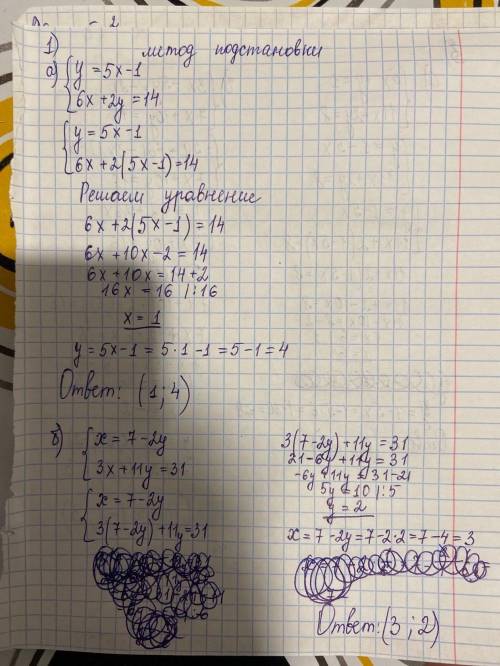 1) метод подстановки
а) { y = 5x-1
6x+2y = 14
{ y = 5x-1
6x+2(5x-1)=14
Решаем уравнение
6x+2(5x-1) = 14
6x+10x-2 = 14
6x+10x = 14+2
16x = 16 /:16
x = 1
y = 5x-1 = 5·1-1 = 5-1 = 4
Ответ: (1;4)
б) { x = 7-2y
3x+11y = 31
{ x = 7-2y
3(7-2y)+11y=31
3(7-2y)+11y = 31
21-6y+11y = 31
-6y+11y = 31-21
5y = 10 /:5
y = 2
x = 7-2y = 7-2·2 = 7-4 = 3
Ответ: (3;2)